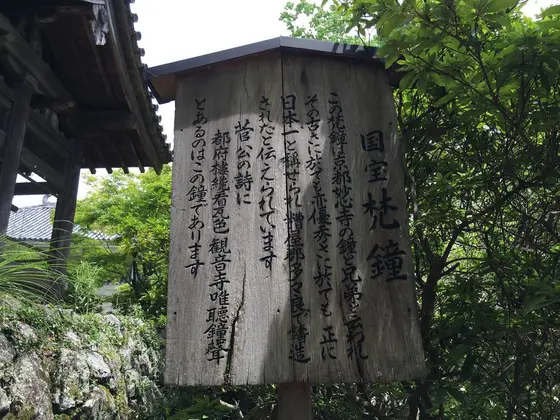 国宝 梵鐘
この梵鐘は京都妙心寺の鐘と兄弟と云われ
その古さに於ても亦優秀さに於ても 正に
日本一と称せられ 糟屋郡多々良で鋳造
されたと伝えられています
菅公の詩に
都府楼纔看瓦色 観音寺唯聴鐘聲
とあるのはこの鐘であります